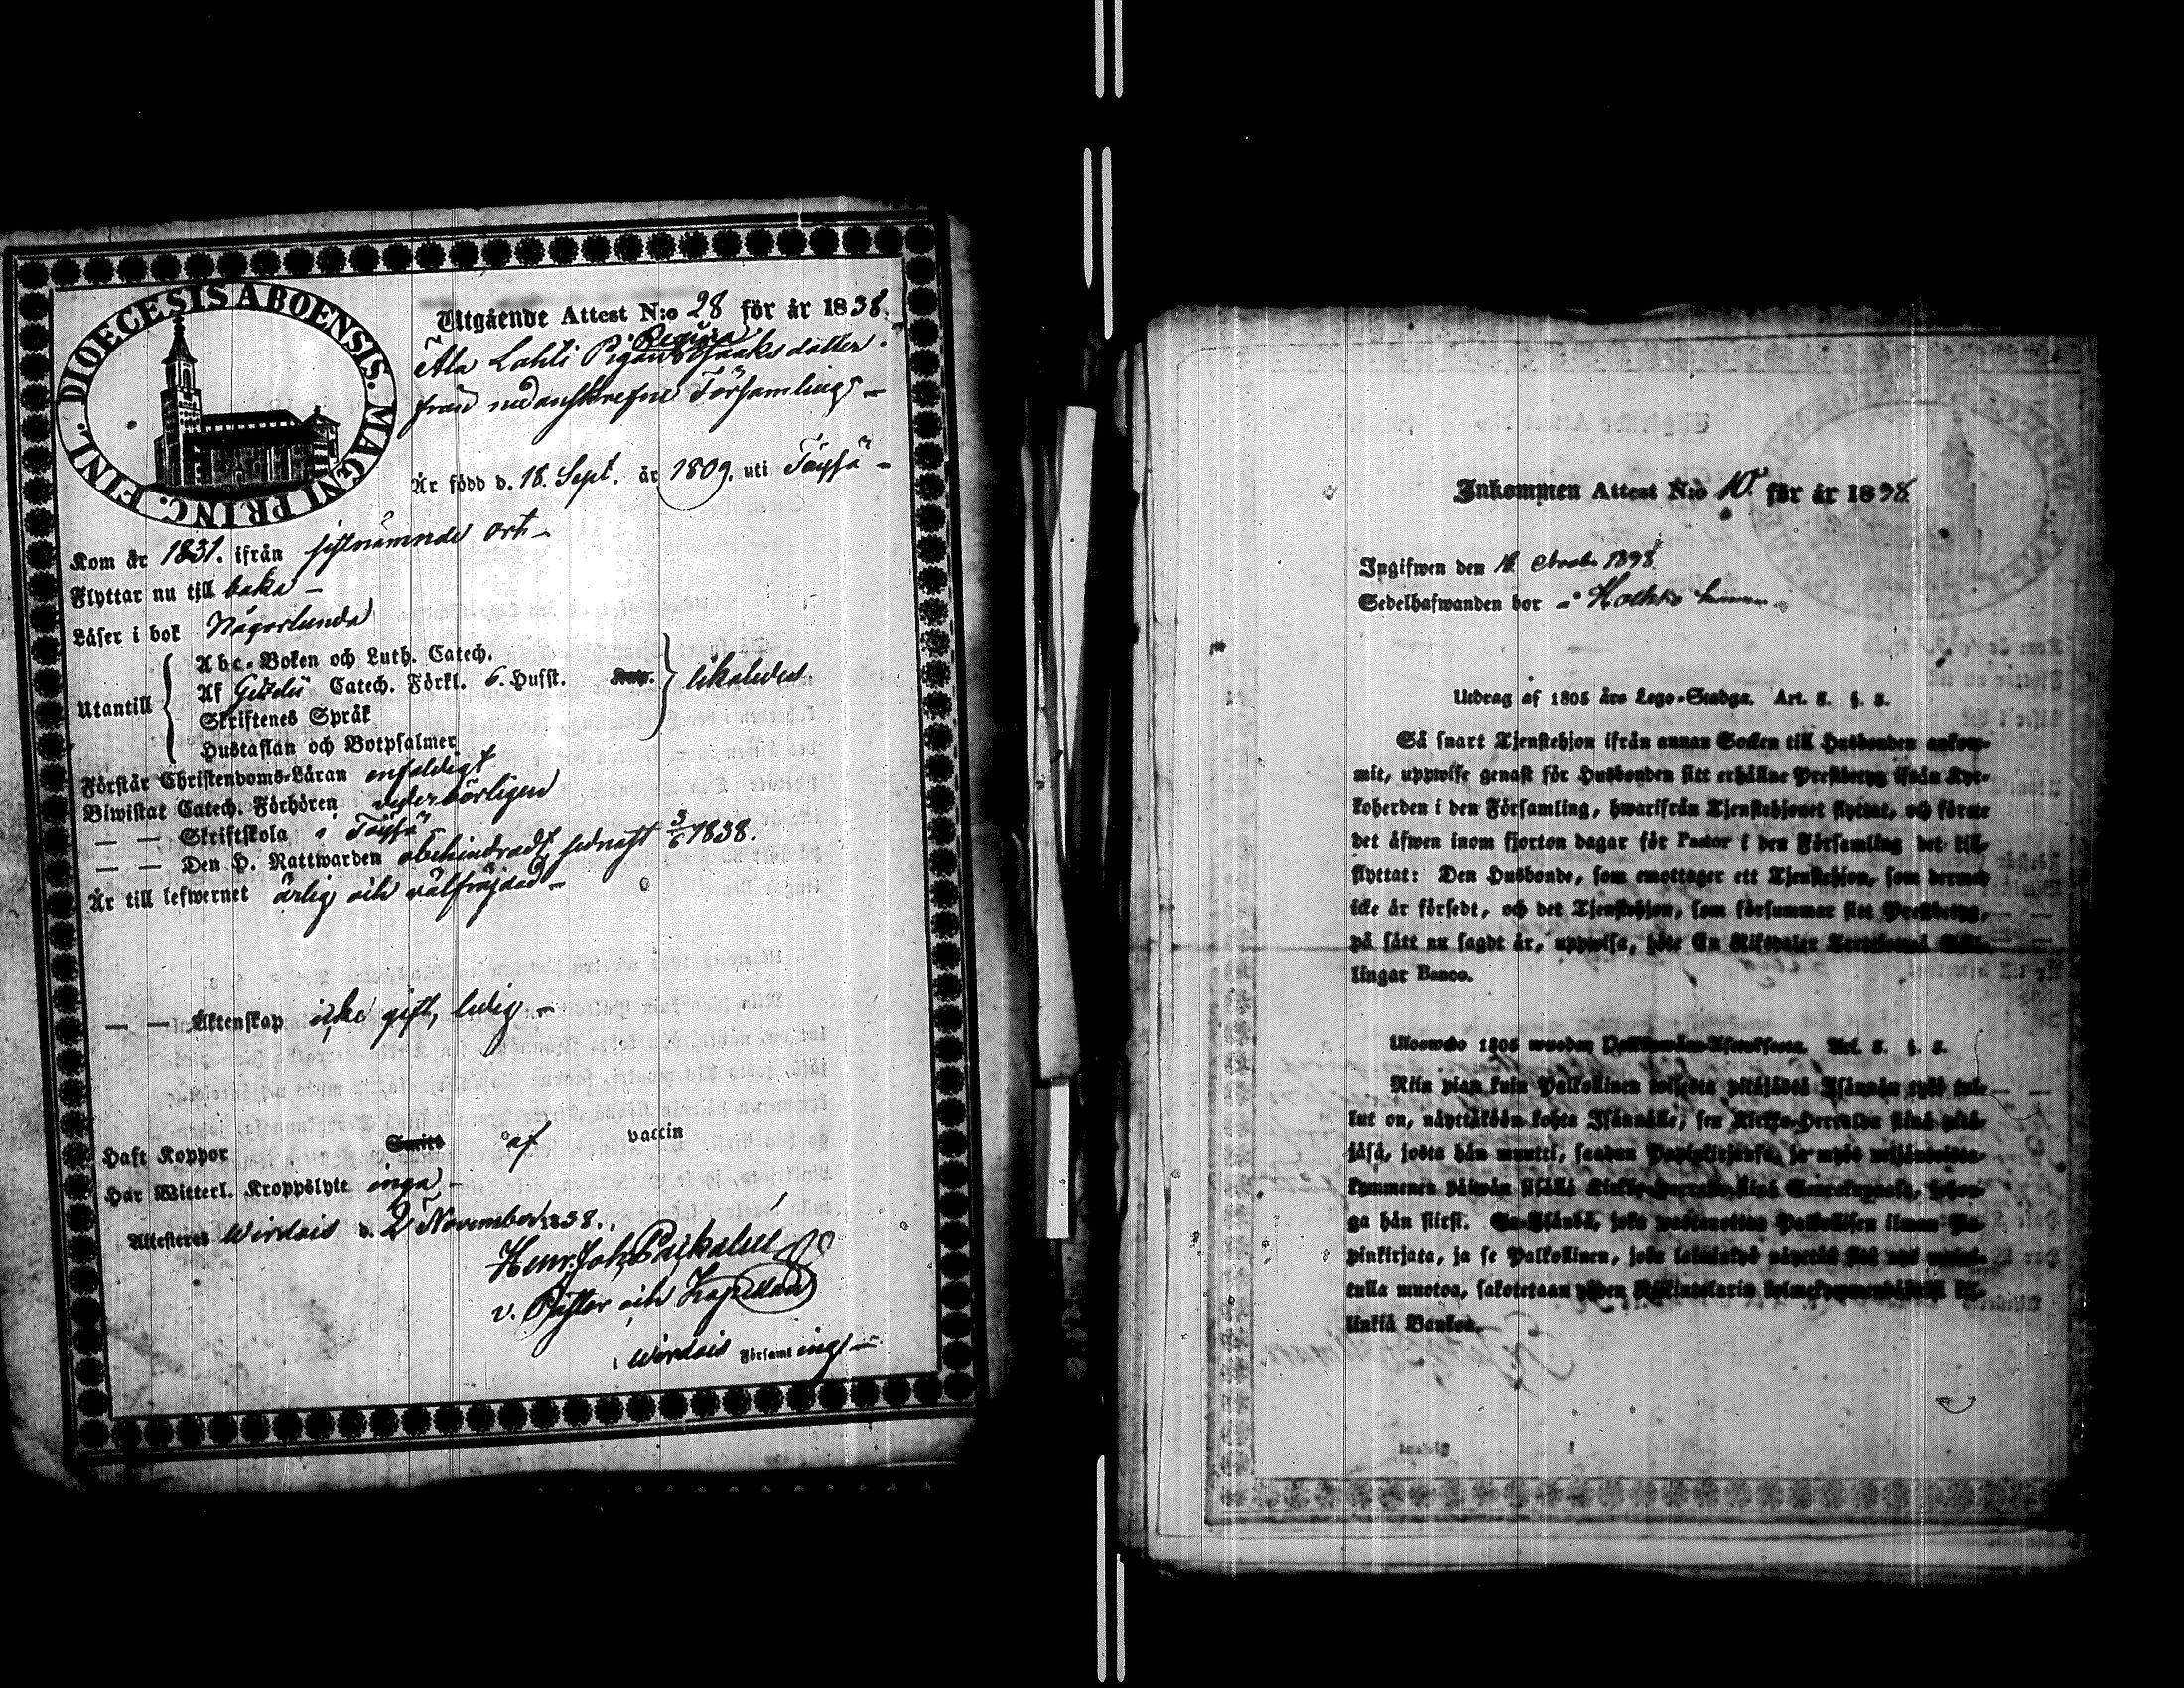 DIOECESIS ABOENSIS. MAGNI PRINC. FINL.
Utgående Attest N:o 28 för år 1838.
Regina
Ala Lahti Pigan Isaksdotter
från nedanskrefne Församling –
Är född d. 18. Sept. år 1809. uti Töysä –
Kom år 1831. ifrån sistnämnde ort –
Flyttar nu till baka –
Läser i bok Någorlunda
Utantill
Abc-Boken och Luth. Catech.
Af Catech. Förkl. 6. Hufst. likaledes
Skriftenes Språk
Hustaflan och Botpsalmer
Förstår Christendoms-Läran enfaldigt
Biwistat Catech. Förhören vederbörligen
— — Skriftskola i Töysä –
— — Den H. Nattwarden obehindradt senast 3/6 1838.
Är till lefwernet ärlig och välfräjdad –
— — Äktenskap icke gift, ledig –
Haft Koppor af vaccin
Har Witterl. Kroppslyte inga –
Attesteras Wirdois d. 2 November 1838.
Henr. Joh.
v. Pastor och Kapellan
i Wirdois Församlings –
Inkommen Attest N:o 10. för år 1838
Ingifwen den 1838
Sedelhafwanden bor
Utdrag af 1805 års Lego-Stadga. Art. 5. §. 5.
Så snart Tjenstehjon ifrån annan Socken till Husbonden ankom-
mit, uppwise genast för Husbonden sitt erhållne Prestbetyg ifrån Kyr-
koherden i den Församling, hwarifrån Tjenstehjonet flyttat, och förete
det äfwen inom fjorton dagar för Pastor i den Församling det till-
flyttat: Den Husbonde, som emottager ett Tjenstehjon, som dermed
icke är försedt, och det Tjenstehjon, som försummar sitt Prestbetyg,
på sätt nu sagdt är, uppwisa, böte En Riksdaler Skil-
lingar Banco.
Uloswedo 1805 wuoden Art. 5. §. 5.
Niin pian kuin Palkollinen toisesta pitäjästä Isännän työö tul-
lut on, näyttäköön kohta Isännälle, sen Kirkko-Herralda siinä pitä-
jäsä, josta hän muutti, saadun Papinkirjansa, ja myös neljäntoista-
kymmenen päiwän sisällä
ga hän siirsi. joka wastanottaa Palkollisen ilman Pa-
pinkirjata, ja se Palkollinen, joka
tulla muotoa, sakotetaan yhden
linkiä Bankoa.